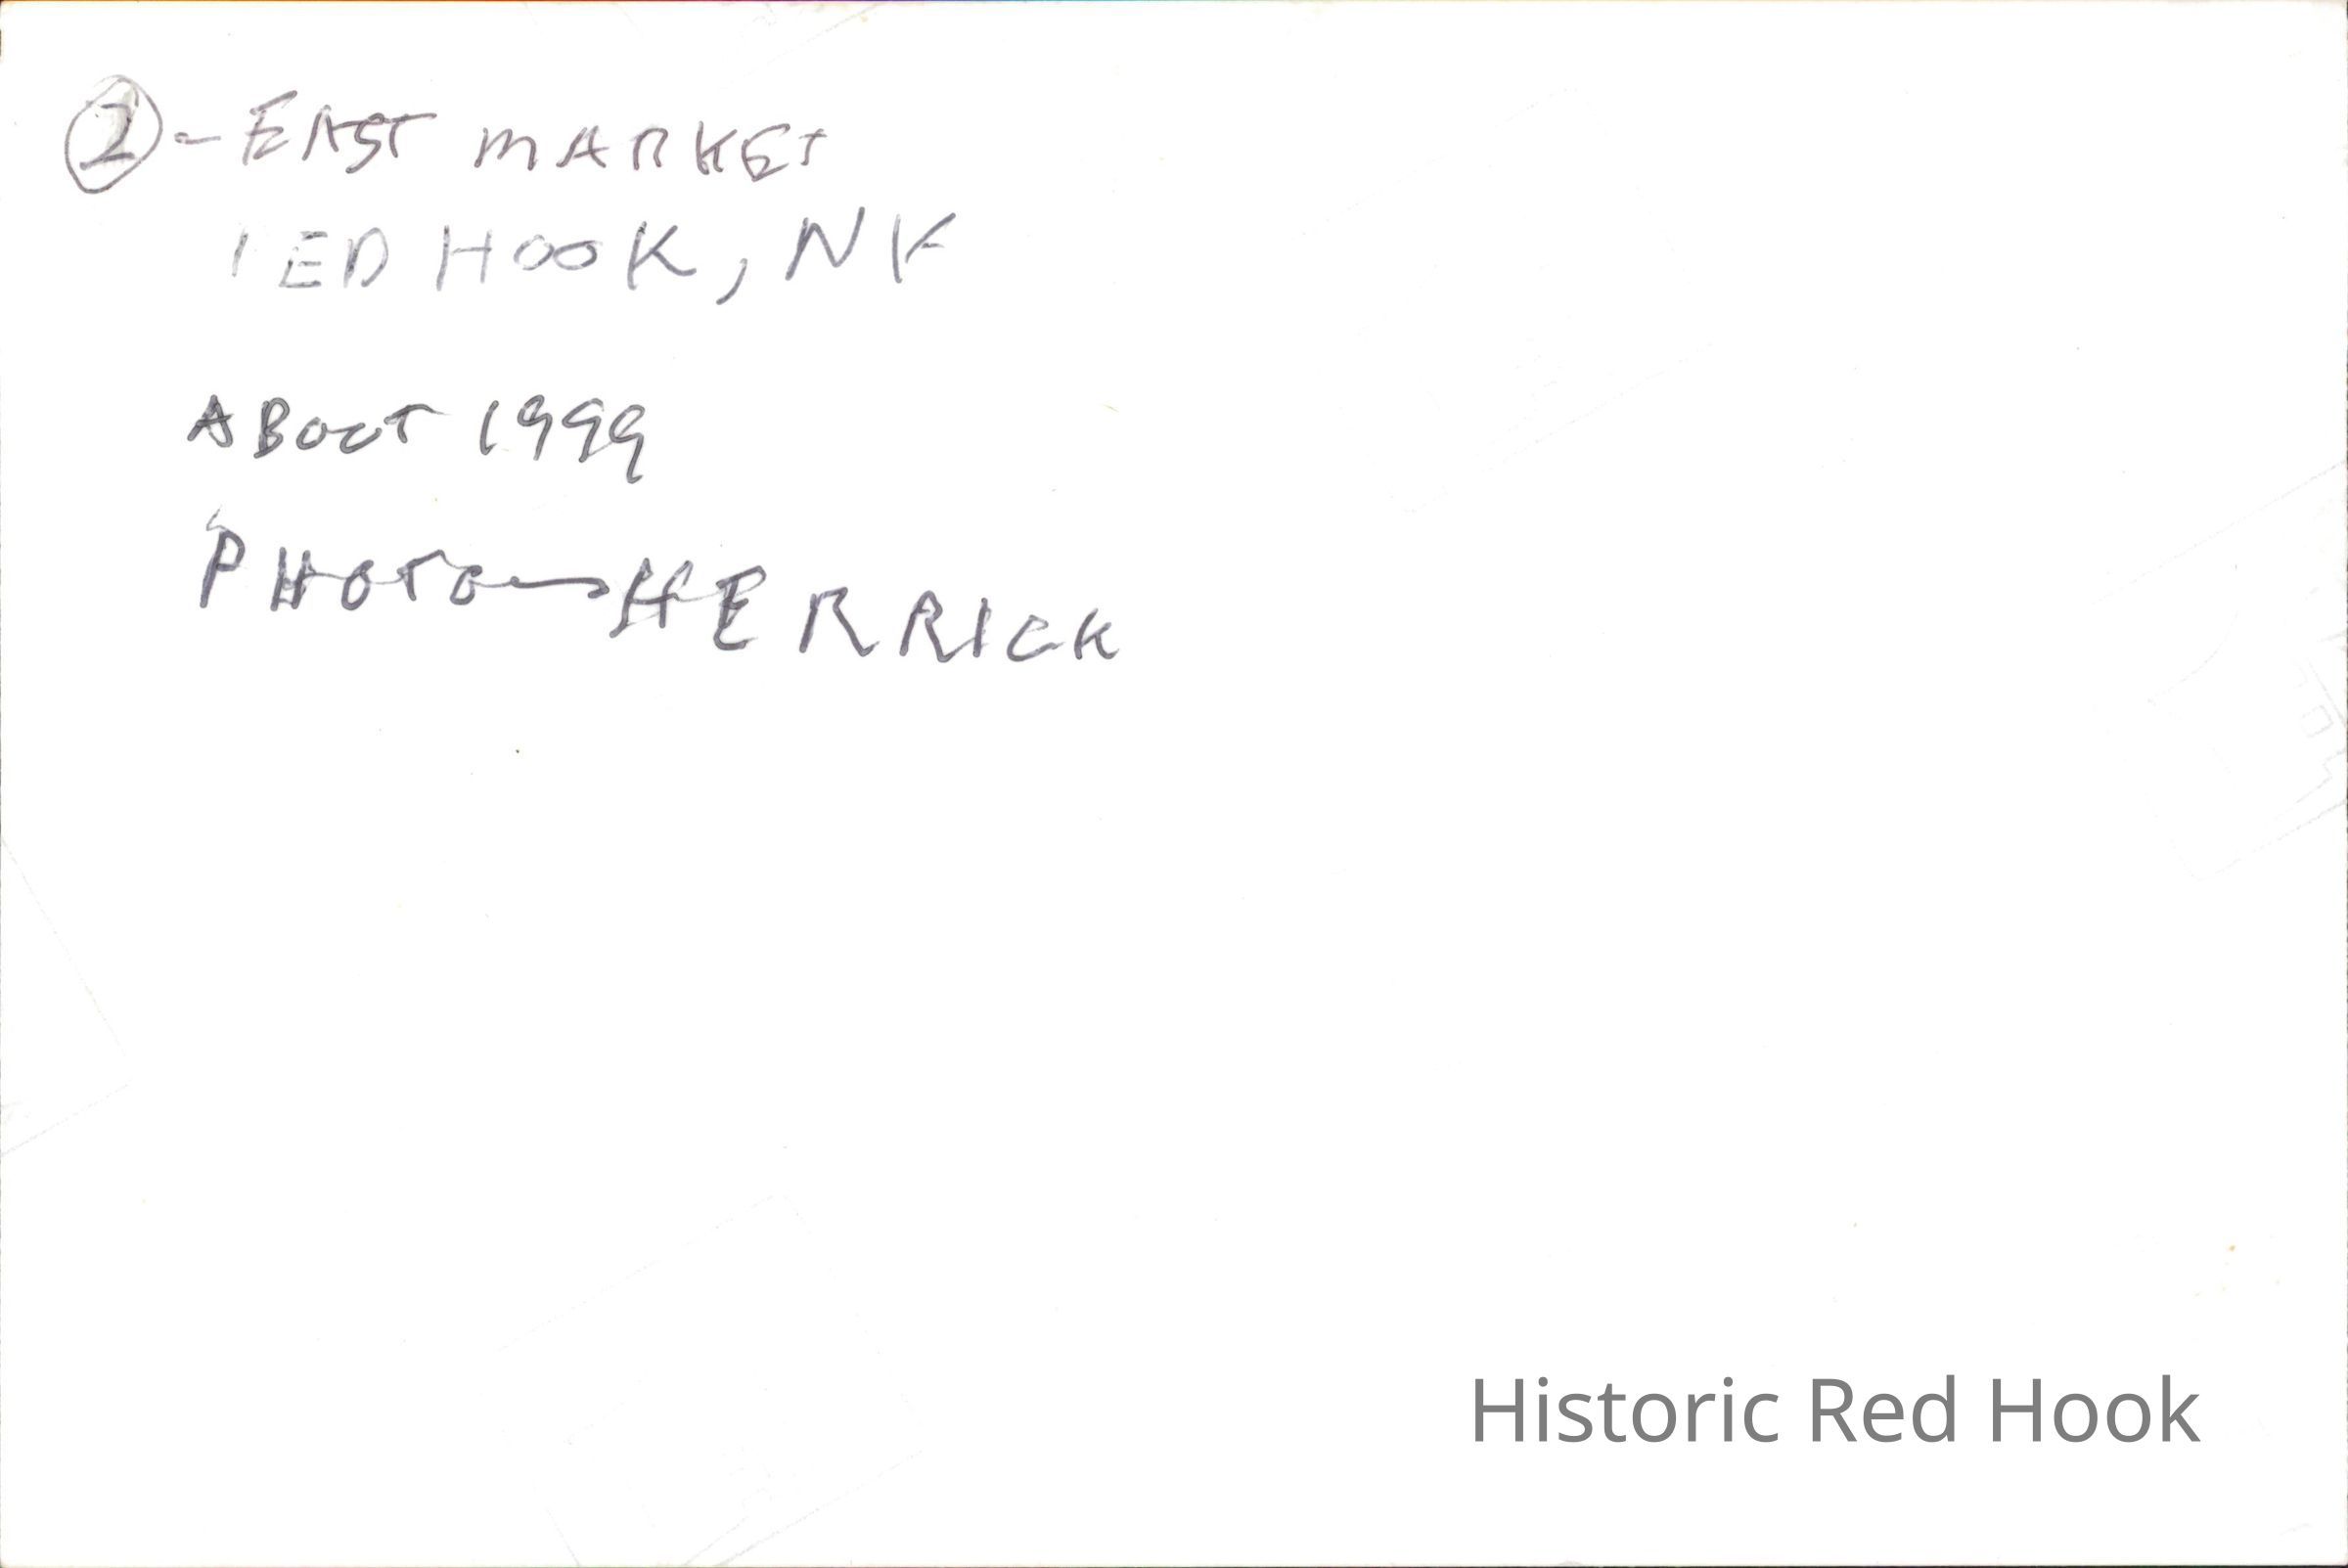 2 - EAST MARKET
RED HOOK, NY
ABOUT 1999
PHOTO - HERRICK
Historic Red Hook